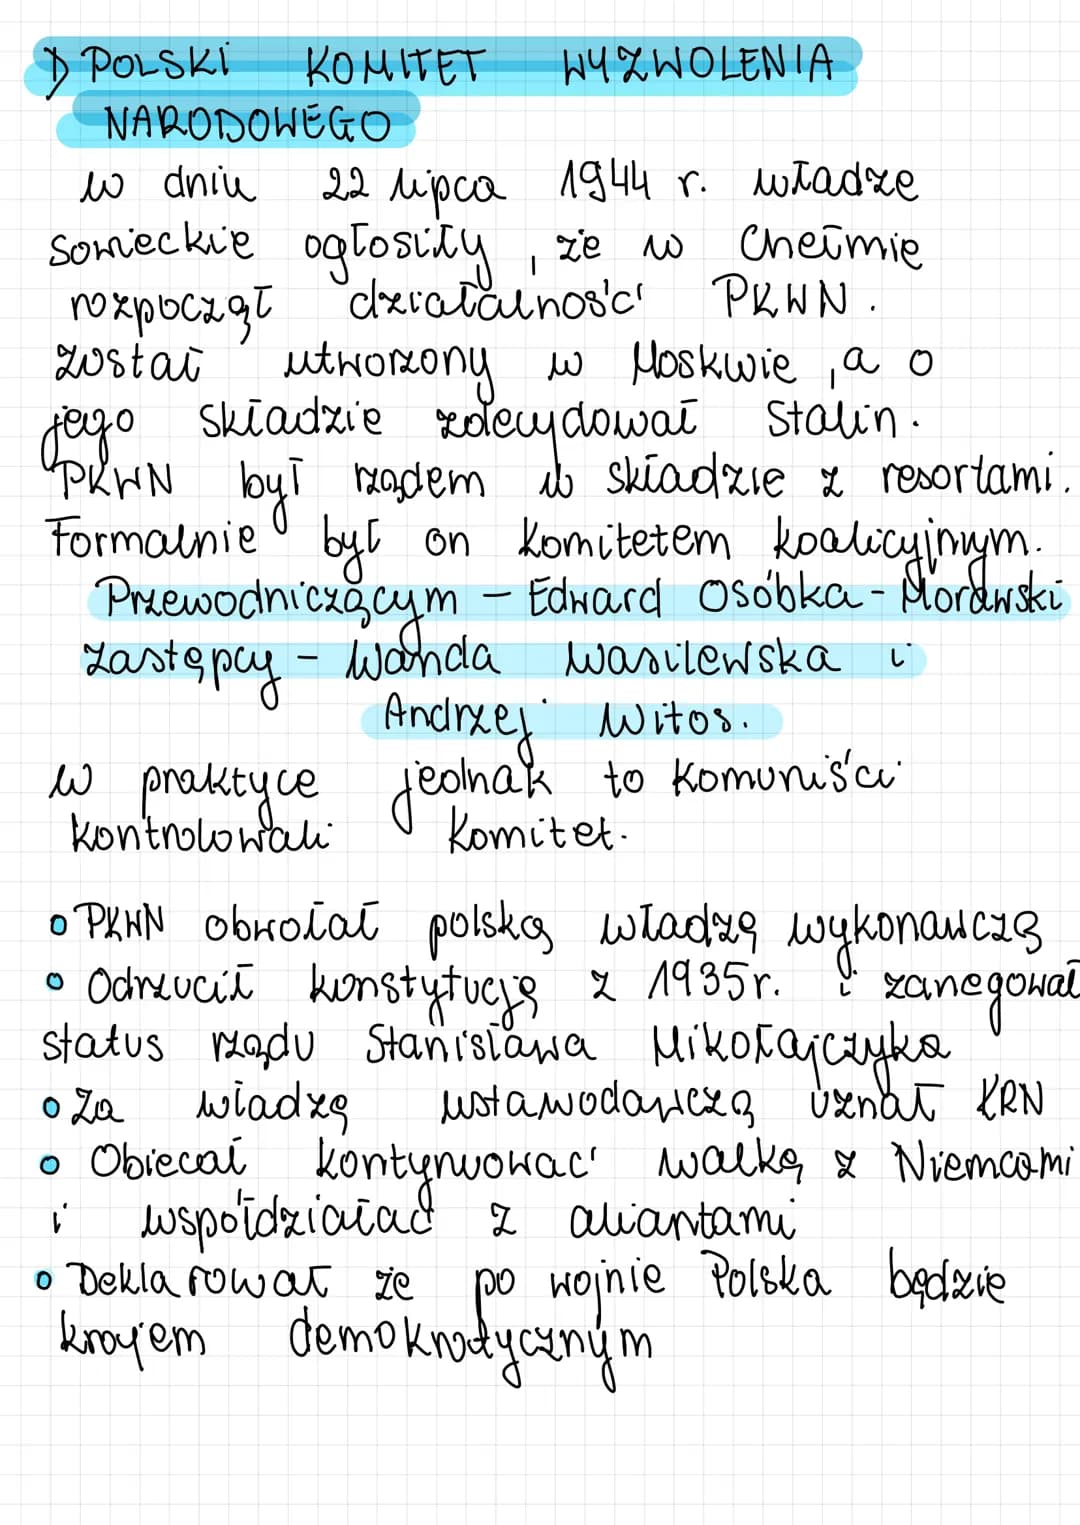 1) POLSKI KOMITET WYZWOLENIA
NARODOWEGO
w dniu 22 lipca 1944 r. władze
sowieckie ogłosiły, że w Chełmie
rozpoczął działalność PKWN.
został utworzony w Moskwie, a o
jego składzie zdecydował Stalin.
PKWN był rządem w składzie z resortami.
Formalnie był on komitetem koalicyjnym.
Przewodniczącym - Edward Osóbka-Morawski
zastępcy - Wanda Wasilewska i
Andrzej Witos.
w praktyce jednak to komuniści
kontrolowali komitet.
• PKWN obwołał polską władzę wykonawczą
• Odrzucił konstytucję z 1935r. i zanegował
status rządu Stanisława Mikołajczyka
• Za władzę ustawodawczą uznał KRN
• Obiecał kontynuować walkę z Niemcami
i współdziałać z aliantami
• Deklarował że po wojnie Polska będzie
krajem demokratycznym